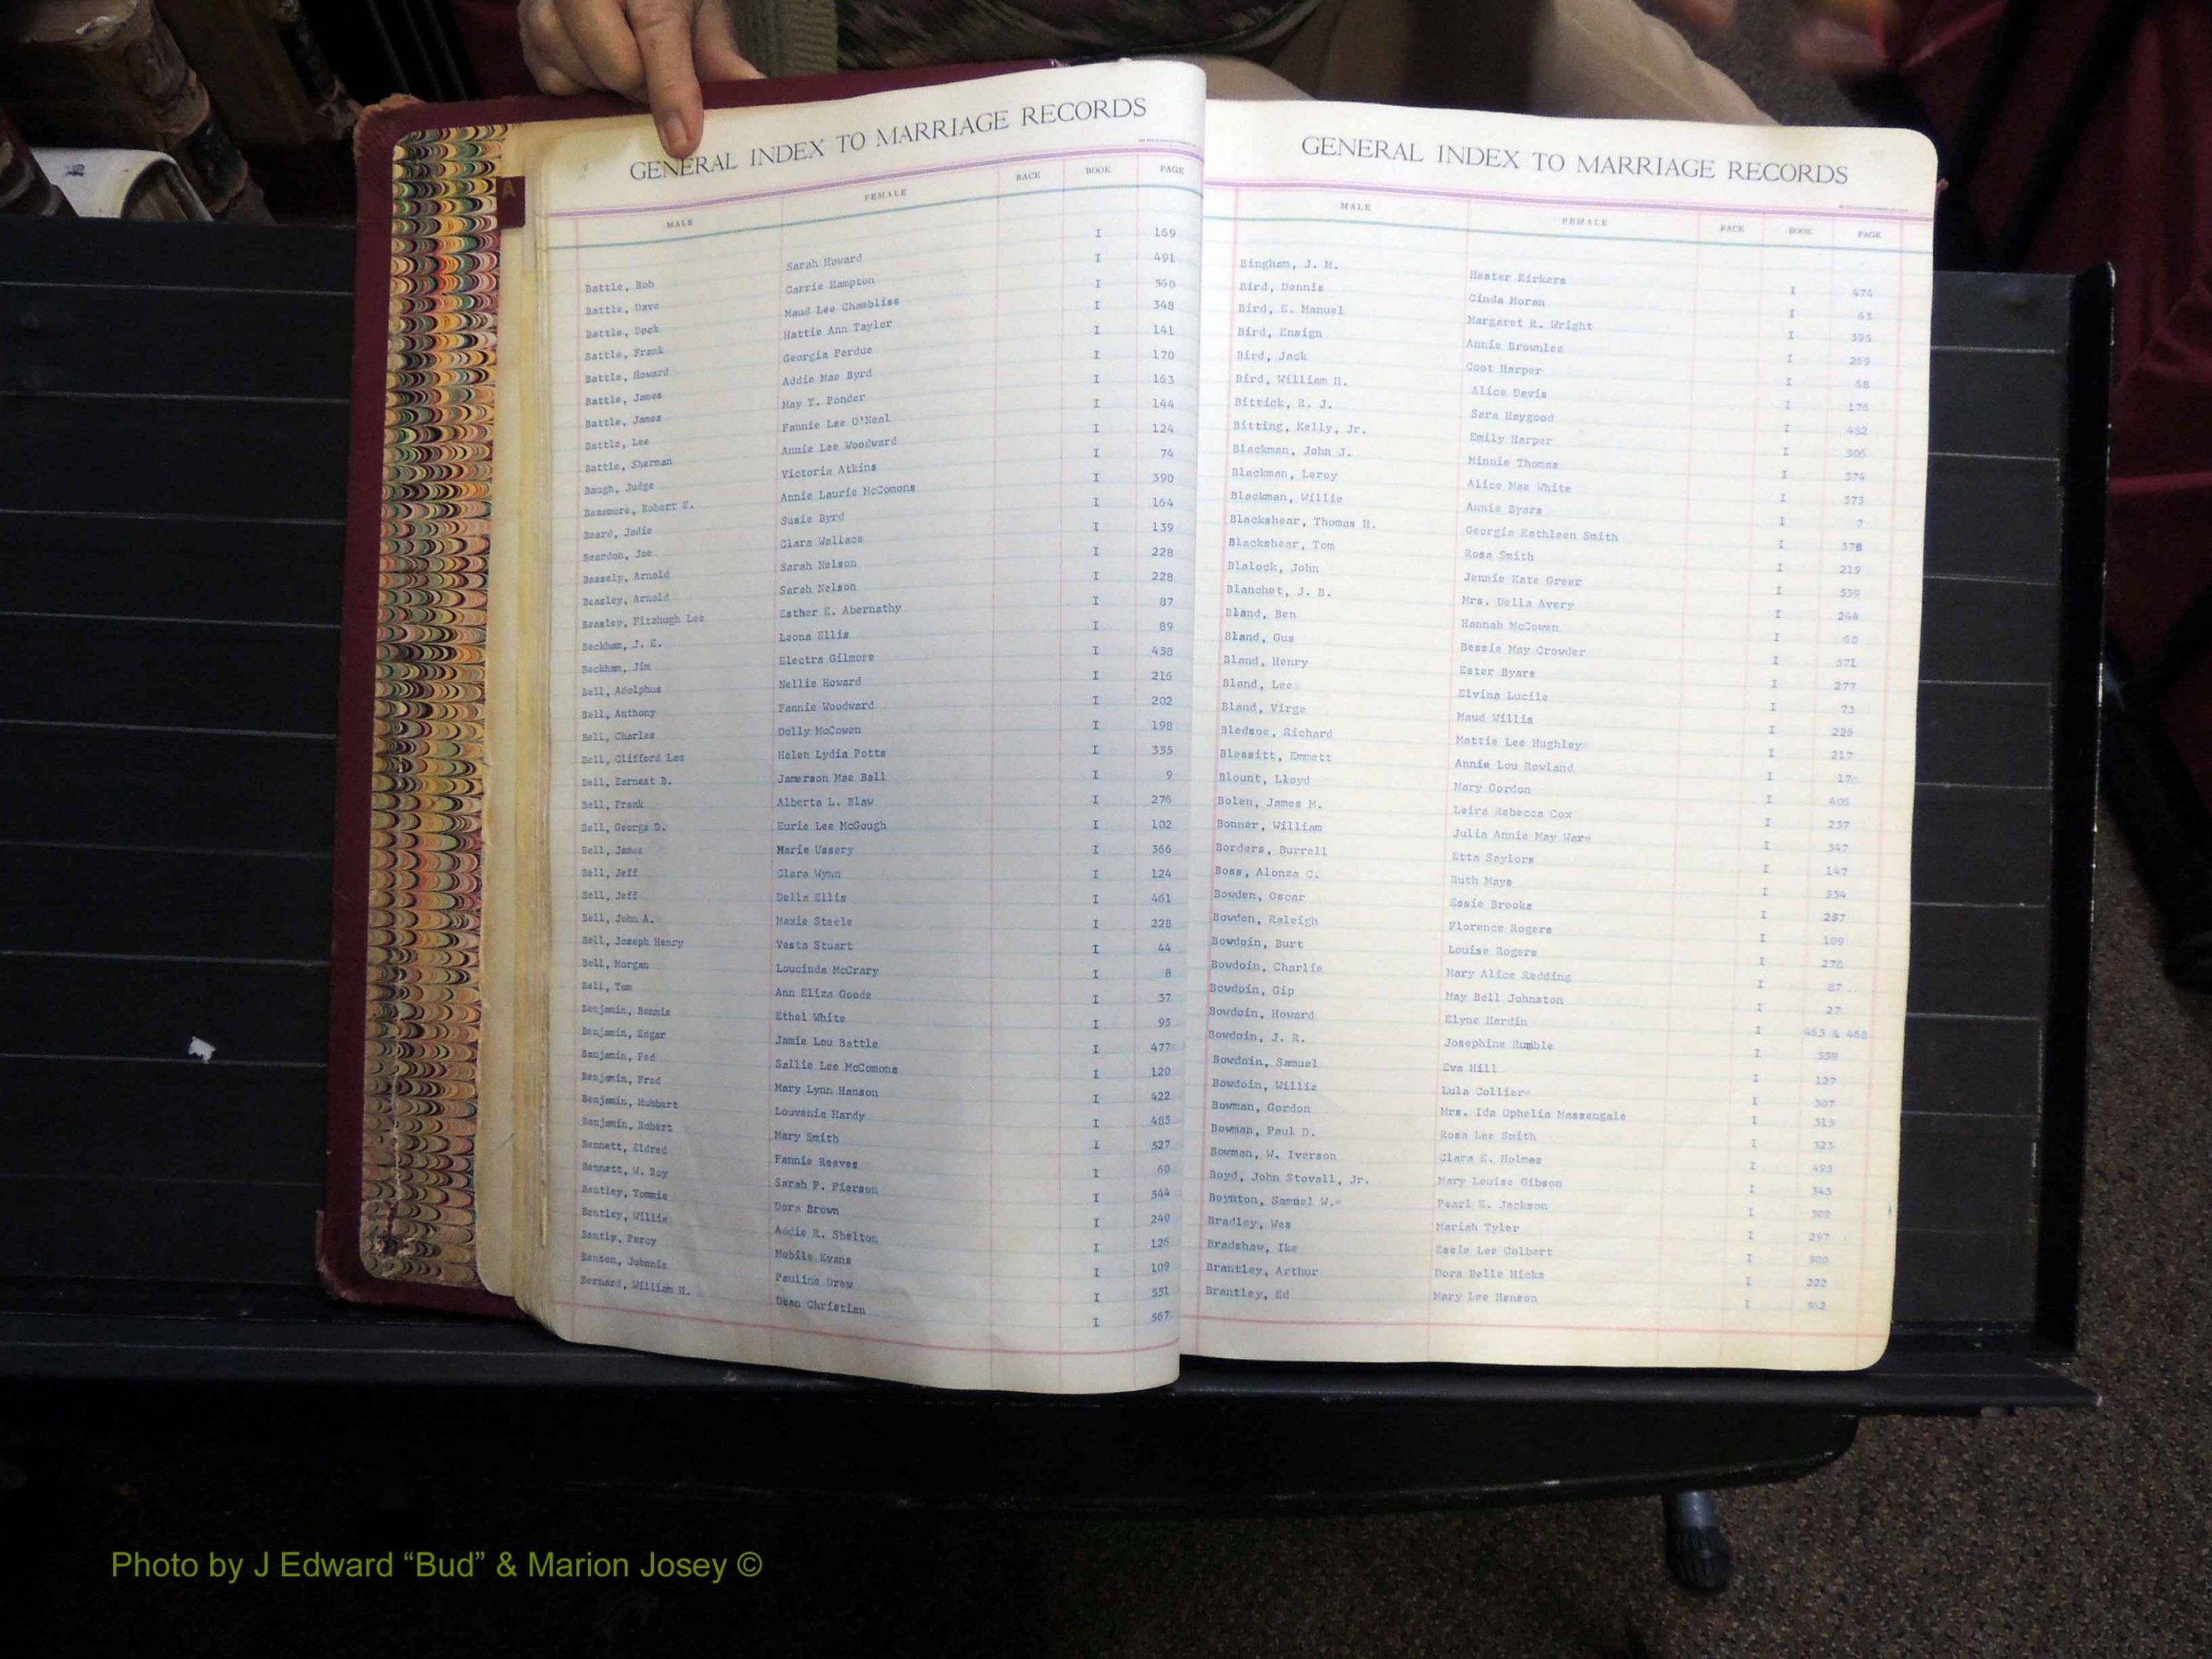 GENERAL INDEX TO MARRIAGE RECORDS
MALE FEMALE RACE BOOK PAGE
Battle, Bob Sarah Howard I 169
Battle, Dave Carrie Hampton I 491
Battle, Dock Maud Lee Chambliss I 550
Battle, Frank Hattie Ann Taylor I 348
Battle, Howard Georgia Perdue I 141
Battle, James Addie Mae Byrd I 170
Battle, James May T. Ponder I 163
Battle, Lee Fannie Lee O'Neal I 144
Battle, Sherman Annie Lee Woodward I 124
Baugh, Judge Victoria Atkins I 74
Bazemore, Robert E. Annie Laurie McComons I 390
Beard, Jodie Susie Byrd I 164
Bearden, Joe Clara Wallace I 139
Beasely, Arnold Sarah Nelson I 228
Beasley, Arnold Sarah Nelson I 228
Beasley, Fitzhugh Lee Esther E. Abernathy I 87
Beckham, J. E. Leona Ellis I 89
Beckham, Jim Electra Gilmore I 458
Bell, Adolphus Nellie Howard I 216
Bell, Anthony Fannie Woodward I 202
Bell, Charles Dolly McCowen I 198
Bell, Clifford Lee Helen Lydia Potts I 355
Bell, Earnest B. Jamerson Mae Bell I 9
Bell, Frank Alberta L. Blaw I 276
Bell, George D. Eurie Lee McGough I 102
Bell, James Marie Ussery I 366
Bell, Jeff Clara Wynn I 124
Bell, Jeff Della Ellis I 461
Bell, John A. Maxie Steele I 228
Bell, Joseph Henry Vesta Stuart I 44
Bell, Morgan Loucinda McCrary I 8
Bell, Tom Ann Eliza Goode I 37
Benjamin, Bennie Ethel White I 95
Benjamin, Edgar Jamie Lou Battle I 477
Benjamin, Fed Sallie Lee McComons I 120
Benjamin, Fred Mary Lynn Hanson I 422
Benjamin, Hubbert Louvenia Hardy I 485
Benjamin, Robert Mary Smith I 527
Bennett, Eldred Fannie Reeves I 60
Bennett, W. Roy Sarah P. Pierson I 544
Bentley, Tommie Dora Brown I 240
Bentley, Willie Addie R. Shelton I 126
Bently, Percy Mobile Evans I 109
Benton, Johnnie Pauline Drew I 551
Bernard, William H. Dean Christian I 567
GENERAL INDEX TO MARRIAGE RECORDS
MALE FEMALE RACE BOOK PAGE
Bingham, J. M. Hester Kirkers I 474
Bird, Dennis Cinda Moran I 63
Bird, E. Manuel Margaret R. Wright I 395
Bird, Ensign Annie Brownlee I 269
Bird, Jack Coot Harper I 68
Bird, William H. Alice Davis I 176
Bittick, R. J. Sara Haygood I 482
Bitting, Kelly, Jr. Emily Harper I
Blackman, John J. Minnie Thomas I 574
Blackman, Leroy Alice Mae White I 373
Blackman, Willie Annie Byars I 7
Blackshear, Thomas H. Georgia Kathleen Smith I 378
Blackshear, Tom Rosa Smith I 219
Blalock, John Jennie Kate Greer I 559
Blanchet, J. B. Mrs. Della Avery I 244
Bland, Ben Hannah McCowen I 60
Bland, Gus Bessie May Crowder I 571
Bland, Henry Ester Byars I 277
Bland, Lee Elvina Lucile I 73
Bland, Virge Maud Willis I 226
Bledsoe, Richard Mattie Lee Hughley I 217
Blessitt, Emmett Annie Lou Rowland I
Blount, Lloyd Mary Gordon I 406
Bolen, James M. Leira Rebecca Cox I 237
Bonner, William Julia Annie May Ware I 347
Borders, Burrell Etta Saylors I 147
Boss, Alonza C. Ruth Mays I 534
Bowden, Oscar Essie Brooks I 257
Bowden, Raleigh Florence Rogers I 109
Bowdoin, Burt Louise Rogers I 276
Bowdoin, Charlie Mary Alice Redding I 87
Bowdoin, Gip May Bell Johnston I 27
Bowdoin, Howard Elyne Hardin I 463 & 468
Bowdoin, J. R. Josephine Rumble I 559
Bowdoin, Samuel Eva Hill I 127
Bowdoin, Willie Lula Collier I 307
Bowman, Gordon Mrs. Ida Ophelia Massengale I 315
Bowman, Paul D. Rosa Lee Smith I 323
Bowman, W. Iverson Clara E. Holmes I 495
Boyd, John Stovall, Jr. Mary Louise Gibson I 343
Boynton, Samuel W. Pearl E. Jackson I 509
Bradley, Wes Mariah Tyler I 297
Bradshaw, Ike Essie Lee Colbert I
Brantley, Arthur Dora Belle Hicks I 222
Brantley, Ed Mary Lee Henson I
A
Photo by J Edward “Bud” & Marion Josey ©